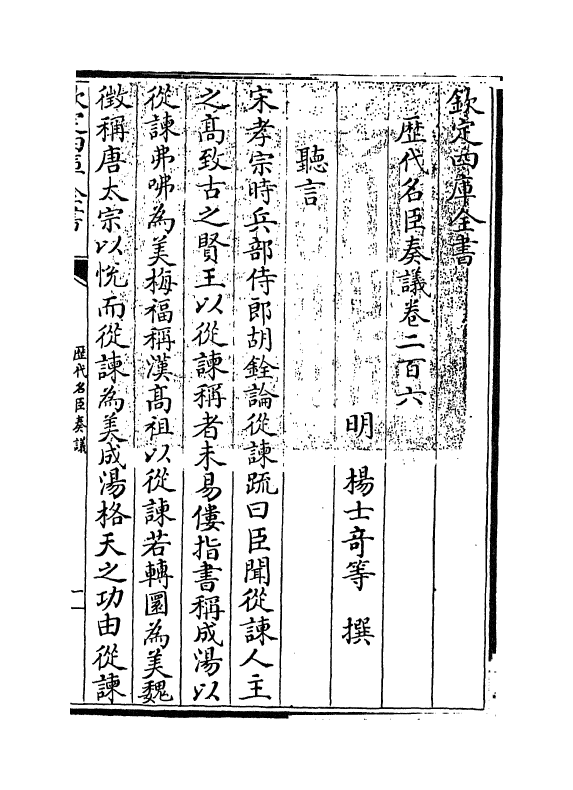 欽定四庫全書
歴代名臣奏議卷二百六
明 楊士竒等 撰
聽言
宋孝宗時兵部侍郎胡銓論從諫䟽曰臣聞從諫人主
之髙致古之賢王以從諫稱者未易僂指書稱成湯以
從諫弗咈為美梅福稱漢髙祖以從諫若轉圜為美魏
徴稱唐太宗以悅而從諫為美成湯格天之功由從諫
歴代名臣奏議